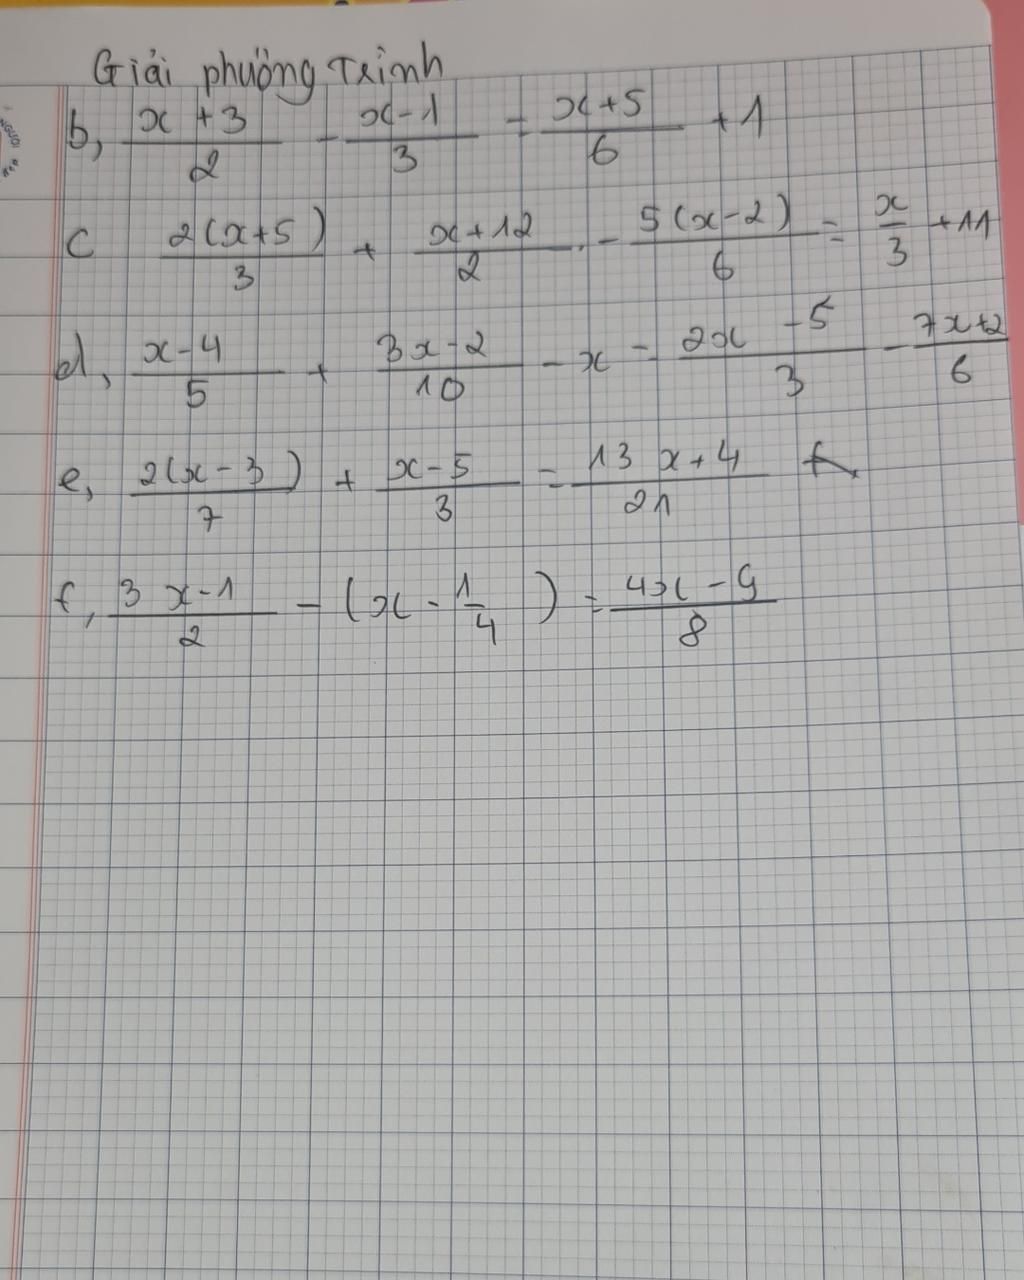 Giải phường Trình
b, (x + 3)/2 - (x-1)/3 = (x+5)/6 + 1
c 2(x+5)/3 + (x+12)/2 - 5(x-2)/6 = x/3 + 11
d, (x-4)/5 + (3x-2)/10 - x = (2x - 5)/3 - (7x+2)/6
e, 2(x-3)/7 + (x-5)/3 = (13x+4)/21
f, (3x-1)/2 - (x - 1/4) = (4x-9)/8